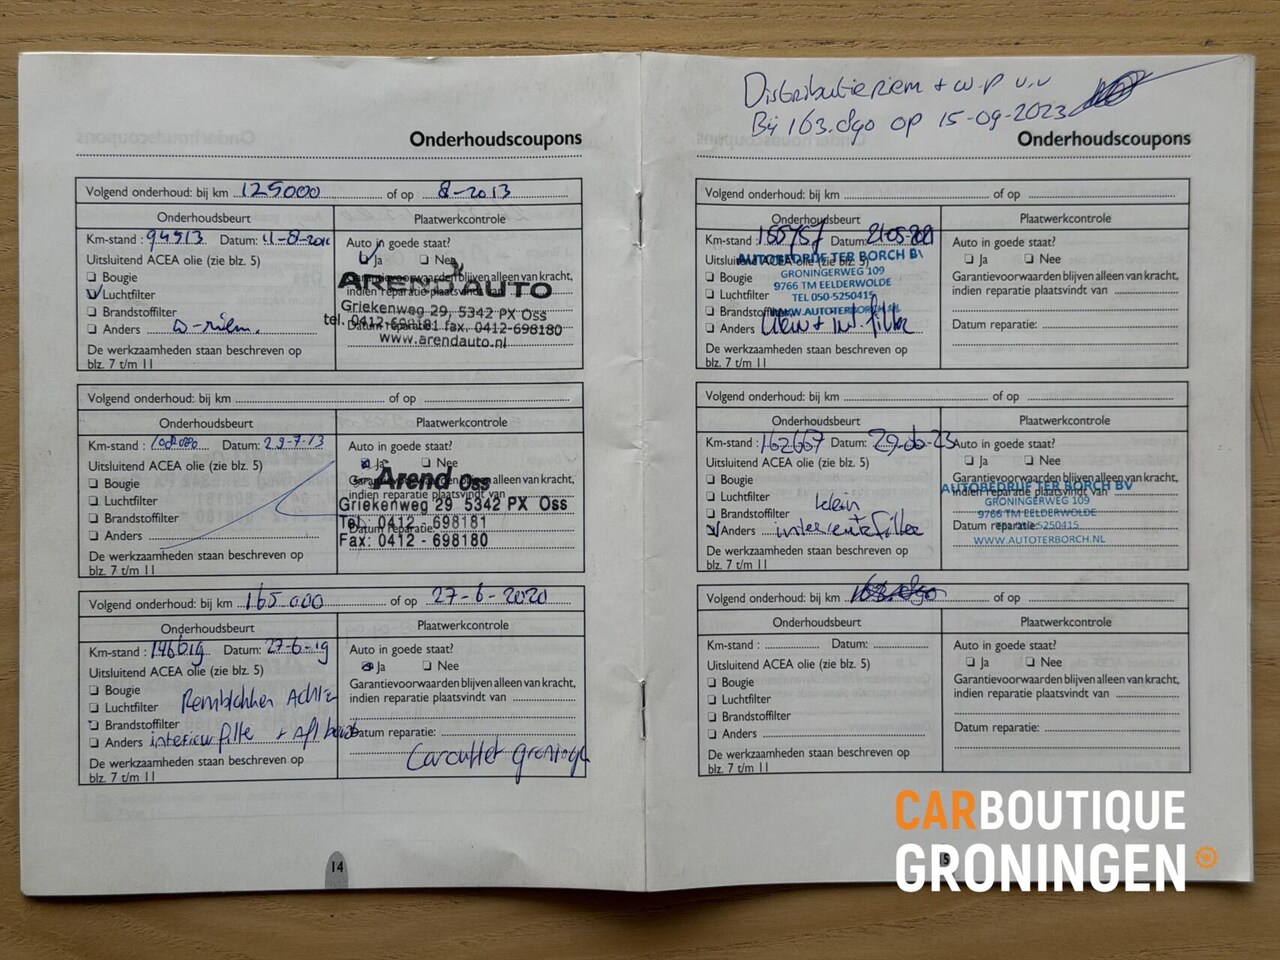 Onderhoudscoupons
Volgend onderhoud: bij km 125000 of op 8-2013
Onderhoudsbeurt Plaatwerkcontrole
Km-stand : 94513 Datum: 11-8-2011 Auto in goede staat?
Uitsluitend ACEA olie (zie blz. 5) Ja Nee
Bougie Garantievoorwaarden blijven alleen van kracht,
Luchtfilter indien reparatie plaatsvindt van
Brandstoffilter
Anders w-riem. Datum reparatie:
De werkzaamheden staan beschreven op
blz. 7 t/m 11
AREND AUTO
Griekenweg 29, 5342 PX Oss
tel. 0412-698181 fax. 0412-698180
www.arendauto.nl
Volgend onderhoud: bij km of op
Onderhoudsbeurt Plaatwerkcontrole
Km-stand : Datum: 29-7-13 Auto in goede staat?
Uitsluitend ACEA olie (zie blz. 5) Ja Nee
Bougie Garantievoorwaarden blijven alleen van kracht,
Luchtfilter indien reparatie plaatsvindt van
Brandstoffilter
Anders Datum reparatie:
De werkzaamheden staan beschreven op
blz. 7 t/m 11
Arend Oss
Griekenweg 29 5342 PX Oss
Tel.: 0412 - 698181
Fax: 0412 - 698180
Volgend onderhoud: bij km 165.000 of op 27-6-2020
Onderhoudsbeurt Plaatwerkcontrole
Km-stand : 146619 Datum: 27-6-19 Auto in goede staat?
Uitsluitend ACEA olie (zie blz. 5) Ja Nee
Bougie Garantievoorwaarden blijven alleen van kracht,
Luchtfilter Remblokken Achter indien reparatie plaatsvindt van
Brandstoffilter
Anders interieurfilter + Datum reparatie:
De werkzaamheden staan beschreven op
blz. 7 t/m 11
Caroutlet Groningen
14
Distributieriem + w.p v.v
Bij 163.890 op 15-09-2023
Onderhoudscoupons
Volgend onderhoud: bij km of op
Onderhoudsbeurt Plaatwerkcontrole
Km-stand : 155757 Datum: 21-05-2021 Auto in goede staat?
Uitsluitend ACEA olie (zie blz. 5) Ja Nee
Bougie Garantievoorwaarden blijven alleen van kracht,
Luchtfilter indien reparatie plaatsvindt van
Brandstoffilter
Anders klein + int. filter Datum reparatie:
De werkzaamheden staan beschreven op
blz. 7 t/m 11
AUTOBEDRIJF TER BORCH BV
GRONINGERWEG 109
9766 TM EELDERWOLDE
TEL 050-5250415
WWW.AUTOTERBORCH.NL
Volgend onderhoud: bij km of op
Onderhoudsbeurt Plaatwerkcontrole
Km-stand : 162667 Datum: 29-06-23 Auto in goede staat?
Uitsluitend ACEA olie (zie blz. 5) Ja Nee
Bougie Garantievoorwaarden blijven alleen van kracht,
Luchtfilter indien reparatie plaatsvindt van
Brandstoffilter klein
Anders Datum reparatie:
De werkzaamheden staan beschreven op
blz. 7 t/m 11
AUTOBEDRIJF TER BORCH BV
GRONINGERWEG 109
9766 TM EELDERWOLDE
TEL 050-5250415
WWW.AUTOTERBORCH.NL
Volgend onderhoud: bij km of op
Onderhoudsbeurt Plaatwerkcontrole
Km-stand : Datum: Auto in goede staat?
Uitsluitend ACEA olie (zie blz. 5) Ja Nee
Bougie Garantievoorwaarden blijven alleen van kracht,
Luchtfilter indien reparatie plaatsvindt van
Brandstoffilter
Anders Datum reparatie:
De werkzaamheden staan beschreven op
blz. 7 t/m 11
15
CARBOUTIQUE
GRONINGEN